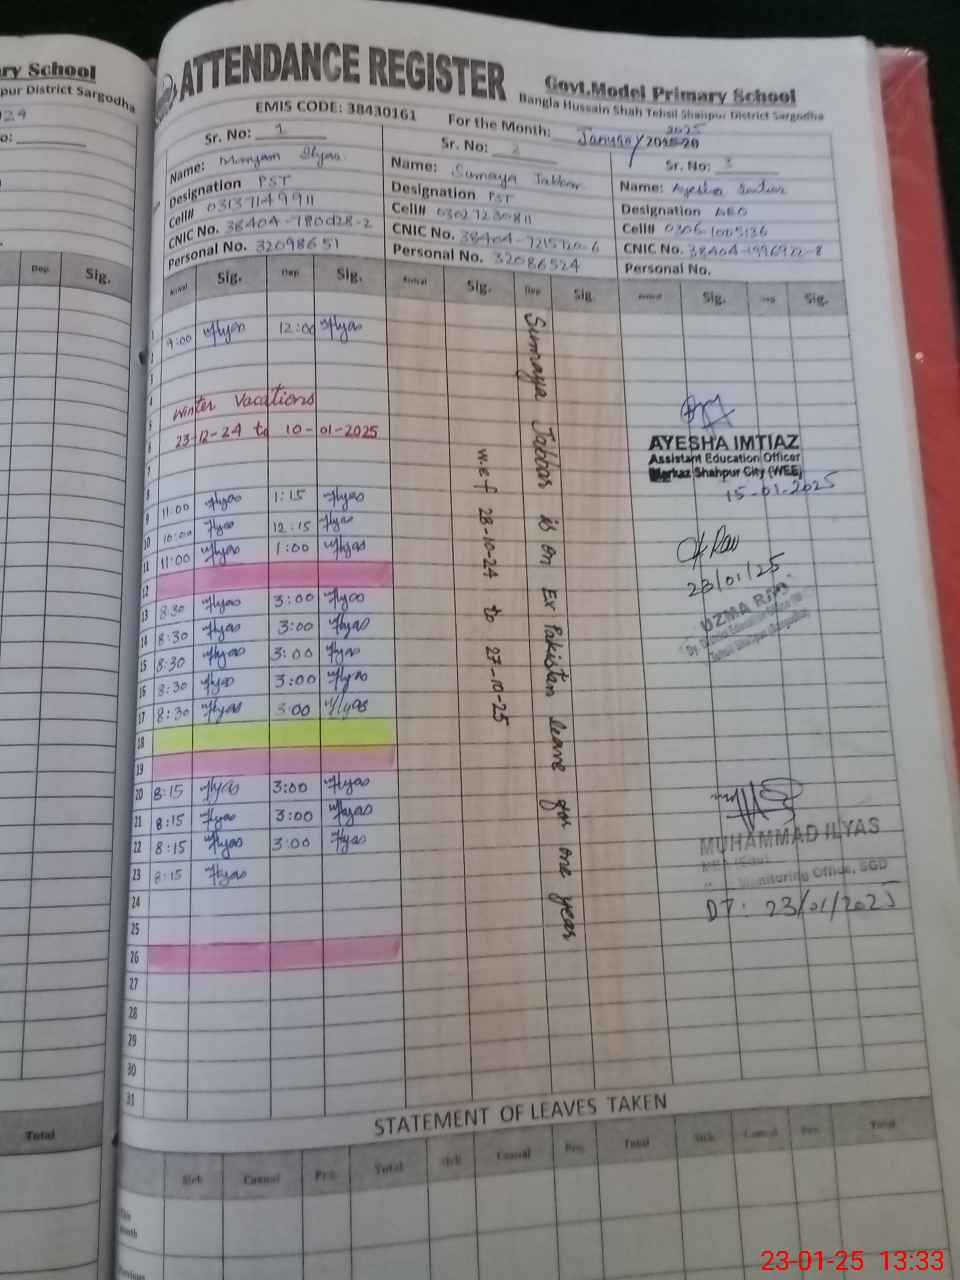 ry School
pur District Sargodha
ATTENDANCE REGISTER
Govt.Model Primary School
Bangla Hussain Shah Tehsil Shahpur District Sargodha
EMIS CODE: 38430161
For the Month: January 2025
Sr. No: 1
Name: Maryam Ilyas
Designation PST
Cell# 03137149911
CNIC No. 38404-780d28-2
Personal No. 32098651
Sr. No: 2
Name: Sumaya Jabbar
Designation PST
Cell# 0302 7230811
CNIC No. 38404-7215720-6
Personal No. 32086524
Sr. No: 3
Name: Ayesha
Designation AEO
Cell# 0306 1005136
CNIC No. 38404-1996922-8
Personal No.
Dep. Sig.
Arrival Sig. Dep Sig. Arrival Sig. Dep Sig. Arrival Sig. Dep Sig.
1 9:00 Ilyas 12:00 Ilyas
2
3
4 Winter Vacations
5 23-12-24 to 10-01-2025
6
7
8
9 11:00 Ilyas 1:15 Ilyas
10 10:00 Ilyas 12:15 Ilyas
11 11:00 Ilyas 1:00 Ilyas
12
13 8:30 Ilyas 3:00 Ilyas
14 8:30 Ilyas 3:00 Ilyas
15 8:30 Ilyas 3:00 Ilyas
16 8:30 Ilyas 3:00 Ilyas
17 8:30 Ilyas 3:00 Ilyas
18
19
20 8:15 Ilyas 3:00 Ilyas
21 8:15 Ilyas 3:00 Ilyas
22 8:15 Ilyas 3:00 Ilyas
23 8:15 Ilyas
24
25
26
27
28
29
30
31
Sumaya Jabbar is on Ex Pakistan leave for one year
w.e.f 28-10-24 to 27-10-25
AYESHA IMTIAZ
Assistant Education Officer
Markaz Shahpur City (WEE)
15-01-2025
23/01/25
UZMA
MUHAMMAD ILYAS
Monitoring Office, SGD
DT: 23/01/2025
STATEMENT OF LEAVES TAKEN
Total
Sick Casual Pri. Total Sick Casual Pri. Total Sick Casual Pri. Total
23-01-25 13:33